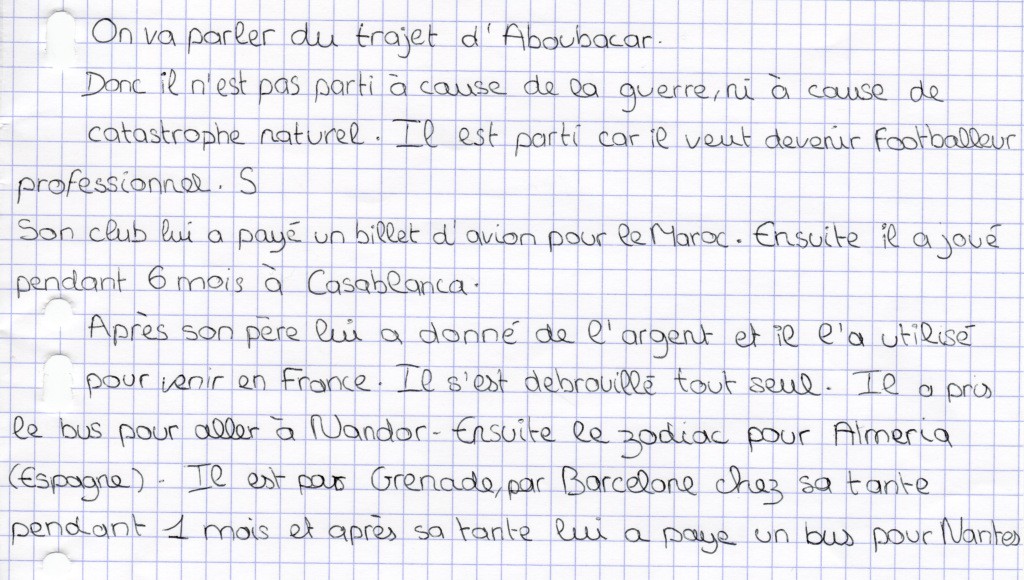 On va parler du trajet d'Aboubacar.
Donc il n'est pas parti à cause de la guerre, ni à cause de
catastrophe naturel. Il est parti car il veut devenir footballeur
professionnel. S
Son club lui a payé un billet d'avion pour le Maroc. Ensuite il a joué
pendant 6 mois à Casablanca.
Après son père lui a donné de l'argent et il l'a utilisé
pour venir en France. Il s'est debrouillé tout seul. Il a pris
le bus pour aller à Nandor - Ensuite le zodiac pour Almeria
(Espagne). Il est par Grenade, par Barcelone chez sa tante
pendant 1 mois et après sa tante lui a paye un bus pour Nantes